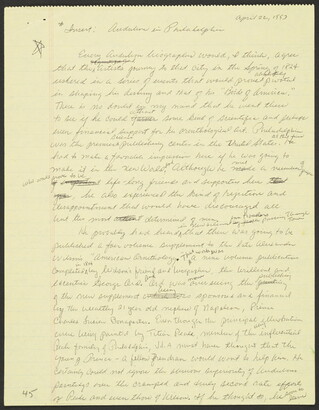 April 22, 1983
*Insert: Audubon in Philadelphia
Every Audubon biographer would, I think, agree
that the artist's journey to that city in the spring of 1824
ushered in a series of events that would prove pivotal
in shaping his destiny and that of his "Birds of America."
There is no doubt in my mind that he went there
to see if he could some kind of scientific and perhaps
even financial support for his ornithological art. Philadelphia
was the premier publishing center in the United States. He
had to make a favorable impression there if he was going to
make it in the new World. Although he made a number of
life long friends and supporters
the city, he experienced the kind of rejection and
disappointment that would have discouraged all
but the most determined of men.
He probably had heard that there was going to be
published a four volume supplement to the late Alexander
Wilson's "American Ornithology," a nine volume publication
completed by Wilson's friend and biographer, the brilliant and
eccentric George Ord. Ord was overseeing the
of the new supplement being sponsored and financed
by the wealthy 21 year old nephew of Napoleon, Prince
Charles Lucien Bonaparte. Even though the principal illustrations
were being painted by Titian Peale, member of the influential
Peale family of Philadelphia, he must have thought that the
Prince of France - a fellow Frenchman would want to help him. He
certainly could not ignore the obvious superiority of Audubon's
paintings over the cramped and surely second rate efforts
of Peale and even those of Wilson. If he thought so, he
45